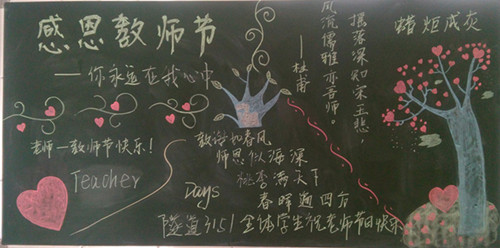 感恩教师节
——你永远在我心中
老师－教师节快乐！
Teacher
Days
教诲如春风
师恩似海深
桃李满天下
春晖遍四方
隧道3151全体学生祝老师节日快乐
摇落深知宋玉悲，
风流儒雅亦吾师。
——杜甫
蜡炬成灰